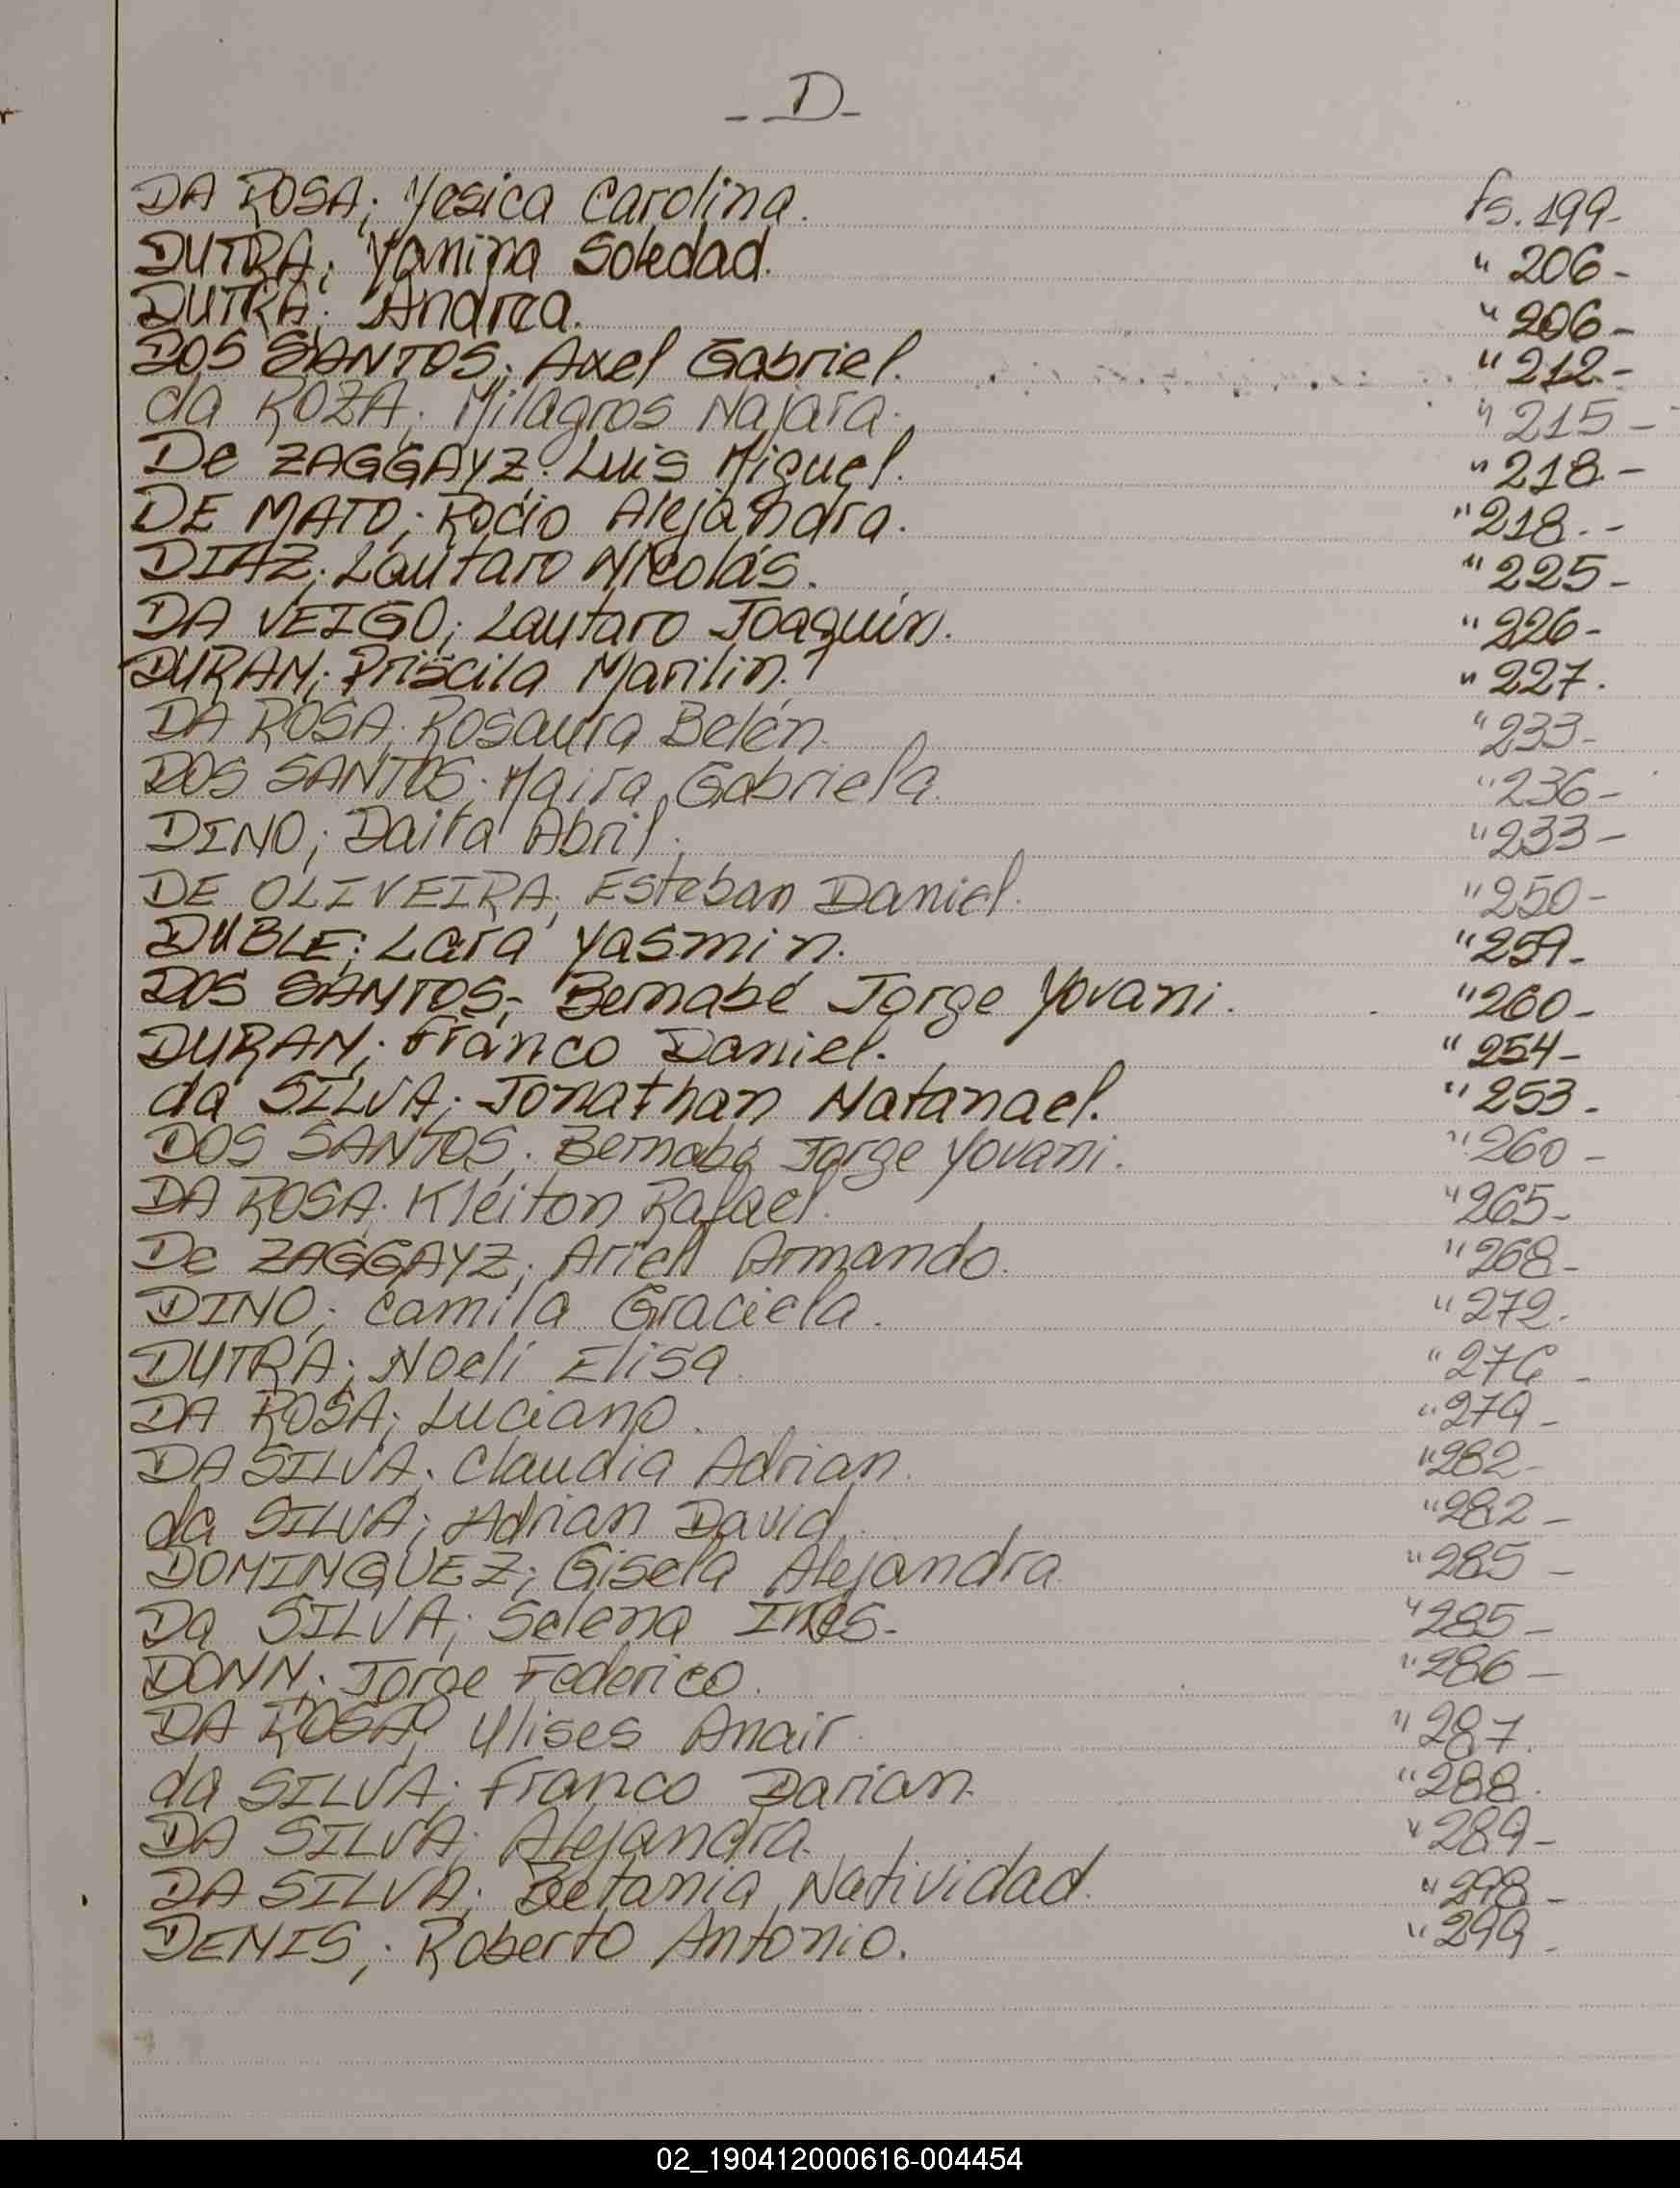 - D -
DA ROSA; Yesica Carolina. fs. 199-
DUTRA; Yanina Soledad. " 206-
DUTRA; Andrea. " 206-
DOS SANTOS; Axel Gabriel. " 212-
da ROZA; Milagros Najara. " 215-
De ZAGGAYZ; Luis Miguel. " 218-
DE MATO; Rocio Alejandra. " 218.-
DIAZ; Lautaro Nicolás. " 225-
DA VEIGO; Lautaro Joaquín. " 226-
DURAN; Priscila Marilin. " 227.
DA ROSA; Rosaura Belén. " 233-
DOS SANTOS; Maira Gabriela. " 236-
DINO; Daira Abril. " 233-
DE OLIVEIRA; Esteban Daniel. " 250-
DUBLE; Lara Yasmin. " 259-
DOS SANTOS; Bernabé Jorge Yovani. " 260-
DURAN; Franco Daniel. " 254-
da SILVA; Jonathan Natanael. " 253-
DOS SANTOS; Bernabé Jorge Yovani. " 260-
DA ROSA; Kleiton Rafael. " 265-
De ZAGGAYZ; Ariel Armando. " 268-
DINO; Camila Graciela. " 272.
DUTRA; Noeli Elisa. " 276-
DA ROSA; Luciano. " 279-
DA SILVA; Claudia Adrian. " 282-
da SILVA; Adrian David. " 282-
DOMINGUEZ; Gisela Alejandra. " 285-
Da SILVA; Selena Ines. " 285-
DONN; Jorge Federico. " 286-
DA ROSA; Ulises Anair. " 287.
da SILVA; Franco Darian. " 288.
DA SILVA; Alejandra. " 289-
DA SILVA; Betania Natividad. " 298-
DENIS; Roberto Antonio. " 299-
02_190412000616-004454